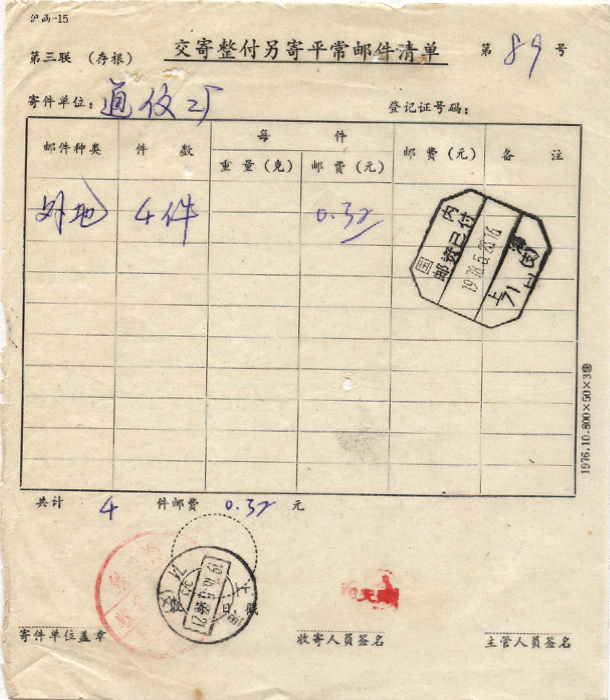 沪函-15
第三联 (存根) 交寄整付另寄平常邮件清单 第 89 号
寄件单位: 通仪厂 登记证号码:
邮件种类 件数 每件 邮费(元) 备注
重量(克) 邮费(元)
外地 4件 0.32
国内
邮资已付
上
71
共计 4 件邮费 0.32 元
寄件单位盖章 收寄人员签名 主管人员签名
1976.10.800×50×3